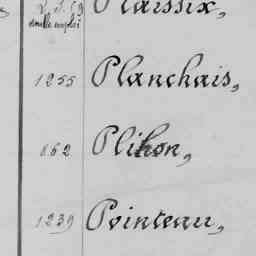 Plaissix,
double emploi
1255 Planchais,
662 Plihon,
1239 Pointeau,